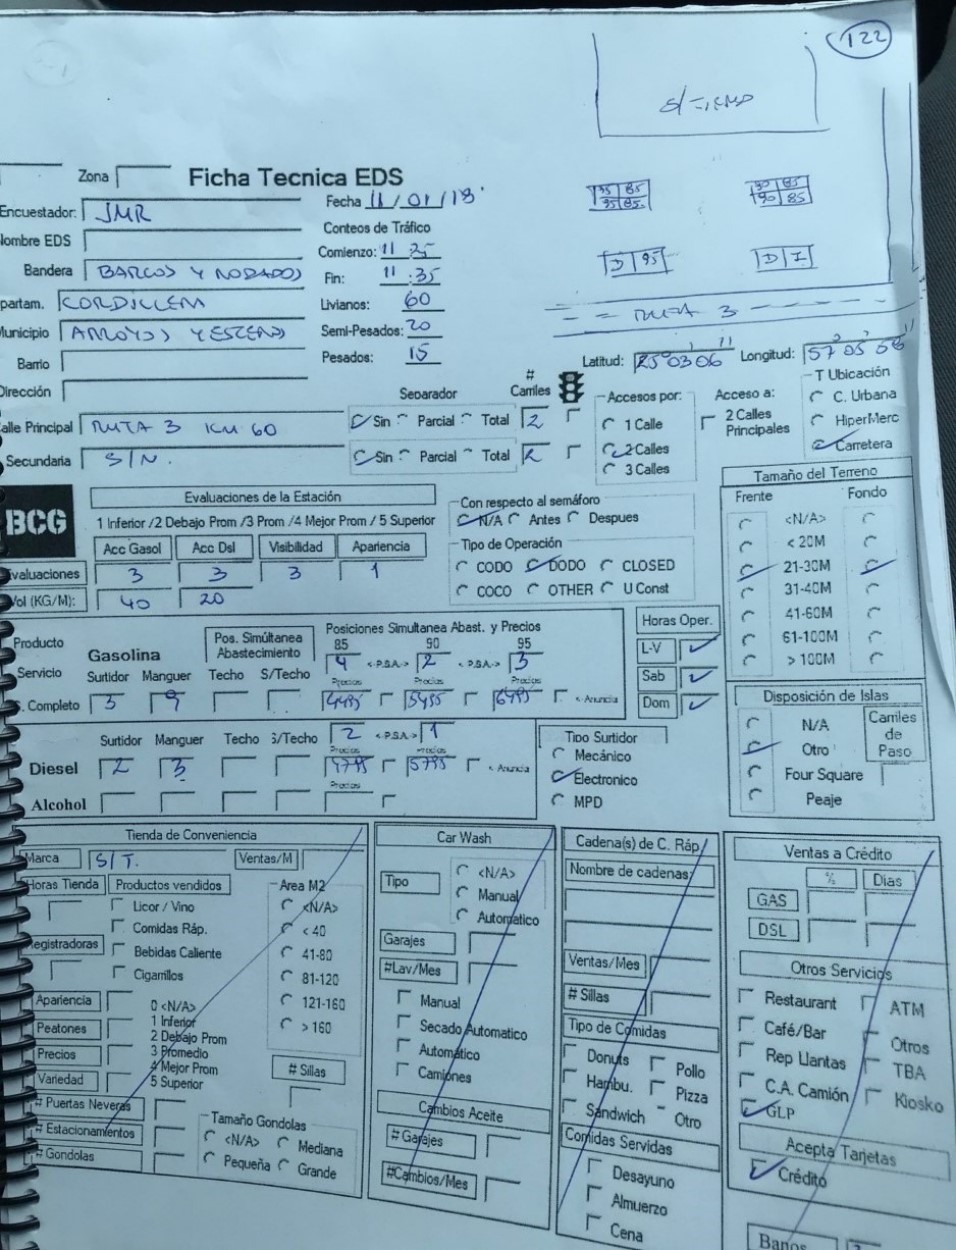 122
S/TIENDA
Zona
Ficha Tecnica EDS
Fecha 11/01/18
95 85
95 85
90 85
90 85
Encuestador: JMR
Conteos de Tráfico
ombre EDS
Comienzo: 11 : 25
D 95
D I
Bandera BARCOS Y RODADOS
Fin: 11 : 35
partam. CORDILLERA
Livianos: 60
RUTA 3
Municipio ARROYOS Y ESTEROS
Semi-Pesados: 20
Barrio
Pesados: 15
Latitud: 25° 03' 06"
Longitud: 57° 05' 58"
Dirección
# Carriles
T Ubicación
C. Urbana
HiperMerc
Carretera
Separador
Accesos por:
Acceso a:
1 Calle
2 Calles
3 Calles
2 Calles Principales
alle Principal RUTA 3 KM 60
Sin Parcial Total 2
Secundaria S/N.
Sin Parcial Total 2
BCG
Evaluaciones de la Estación
1 Inferior /2 Debajo Prom /3 Prom /4 Mejor Prom / 5 Superior
Acc Gasol Acc Dsl Visibilidad Apariencia
valuaciones 3 3 3 1
Vol (KG/M): 40 20
Con respecto al semáforo
N/A Antes Despues
Tipo de Operación
CODO DODO CLOSED
COCO OTHER U Const
Tamaño del Terreno
Frente Fondo
<N/A>
< 20M
21-30M
31-40M
41-60M
61-100M
> 100M
Producto
Servicio
. Completo
Gasolina
Pos. Simúltanea Abastecimiento
Posiciones Simultanea Abast. y Precios
85 90 95
4 <-P.S.A.-> 2 <-P.S.A.-> 3
Surtidor Manguer Techo S/Techo
Precios Precios Precios
3 9 4495 5455 6495 <-Anuncia
Horas Oper.
L-V
Sab
Dom
Disposición de Islas
N/A
Otro
Four Square
Peaje
Carriles de Paso
Surtidor Manguer Techo S/Techo
2 <-P.S.A-> 1
Precios Precios
Diesel 2 3 4795 5795 <-Anuncia
Precios
Alcohol
Tipo Surtidor
Mecánico
Electronico
MPD
Tienda de Conveniencia
Marca S/T.
Ventas/M
Horas Tienda
Productos vendidos
Licor / Vino
Comidas Ráp.
Registradoras
Bebidas Caliente
Cigarrillos
Area M2
<N/A>
< 40
41-80
81-120
121-160
> 160
Apariencia
Peatones
Precios
Variedad
0 <N/A>
1 Inferior
2 Debajo Prom
3 Promedio
4 Mejor Prom
5 Superior
# Sillas
# Puertas Neveras
# Estacionamientos
# Gondolas
Tamaño Gondolas
<N/A> Mediana
Pequeña Grande
Car Wash
Tipo
<N/A>
Manual
Automatico
Garajes
#Lav/Mes
Manual
Secado Automatico
Automático
Camiones
Cambios Aceite
# Garajes
#Cambios/Mes
Cadena(s) de C. Ráp.
Nombre de cadenas:
Ventas/Mes
# Sillas
Tipo de Comidas
Donuts Pollo
Hambu. Pizza
Sandwich Otro
Comidas Servidas
Desayuno
Almuerzo
Cena
Ventas a Crédito
% Dias
GAS
DSL
Otros Servicios
Restaurant ATM
Café/Bar Otros
Rep Llantas TBA
C.A. Camión Kiosko
GLP
Acepta Tarjetas
Crédito
Banos